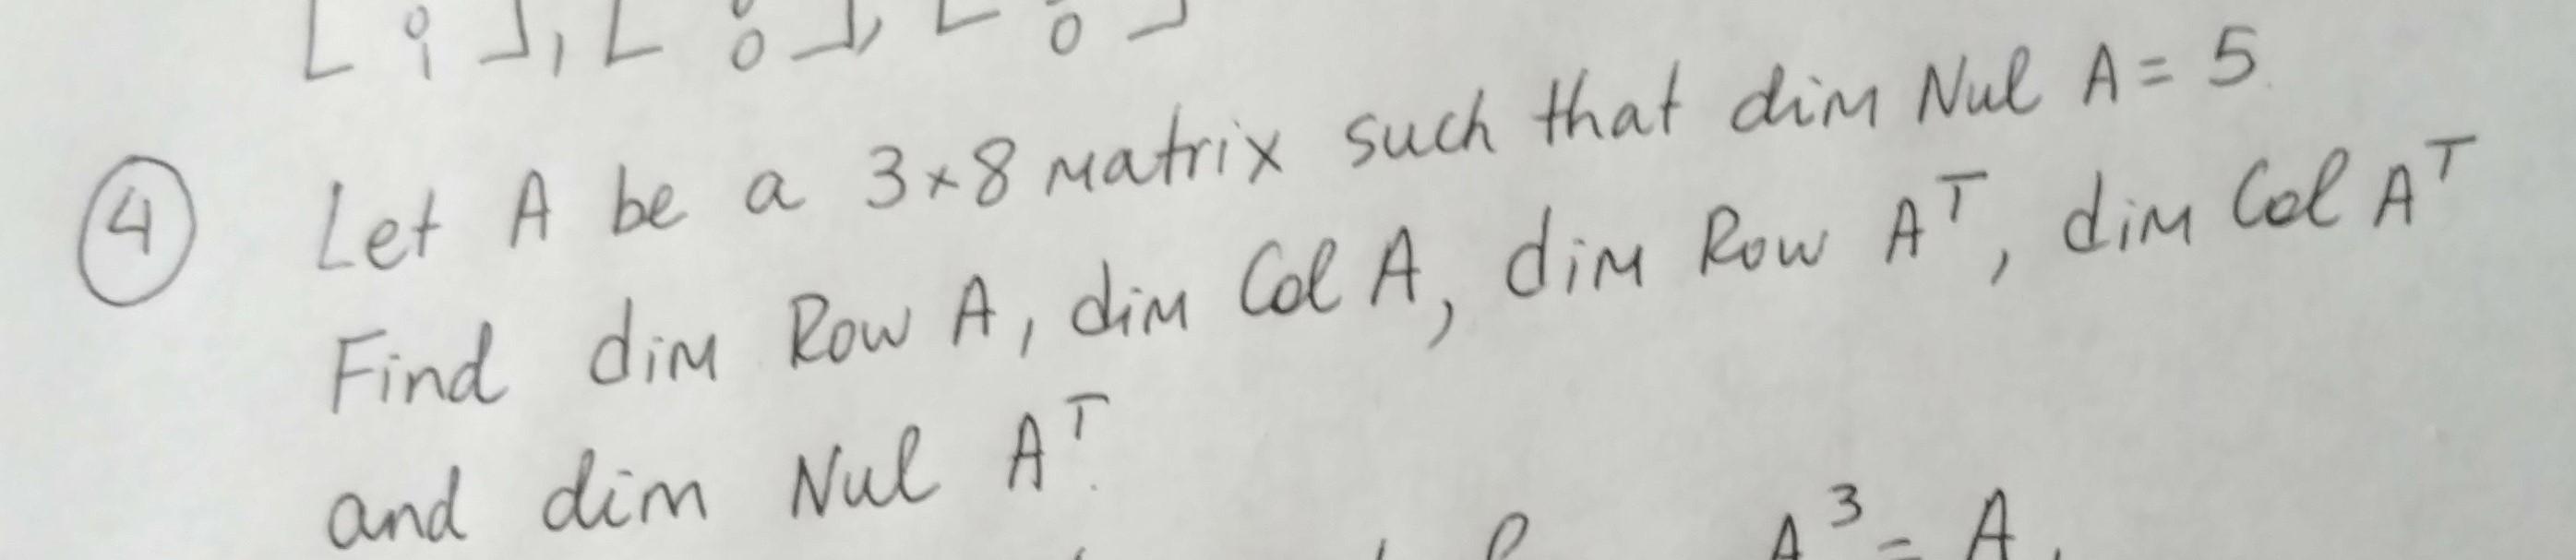 [ 0 1 ], [ 0 0 ], [ 0 ]
④ Let A be a 3×8 matrix such that dim Nul A = 5.
Find dim Row A, dim Col A, dim Row Aᵀ, dim Col Aᵀ
and dim Nul Aᵀ.
A³ = A.